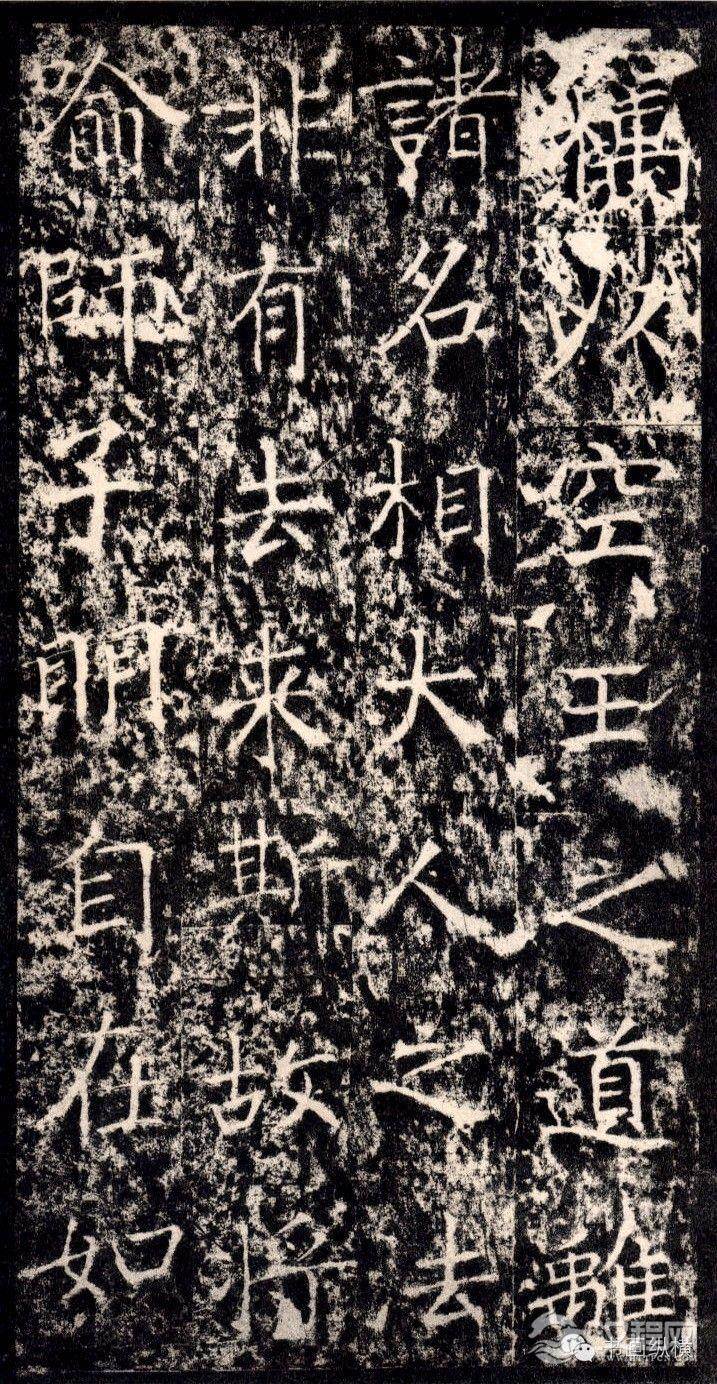 竊以空王之道離
諸名相大人之去
非有去来斯故將
喻師子明自在如
书画纵横